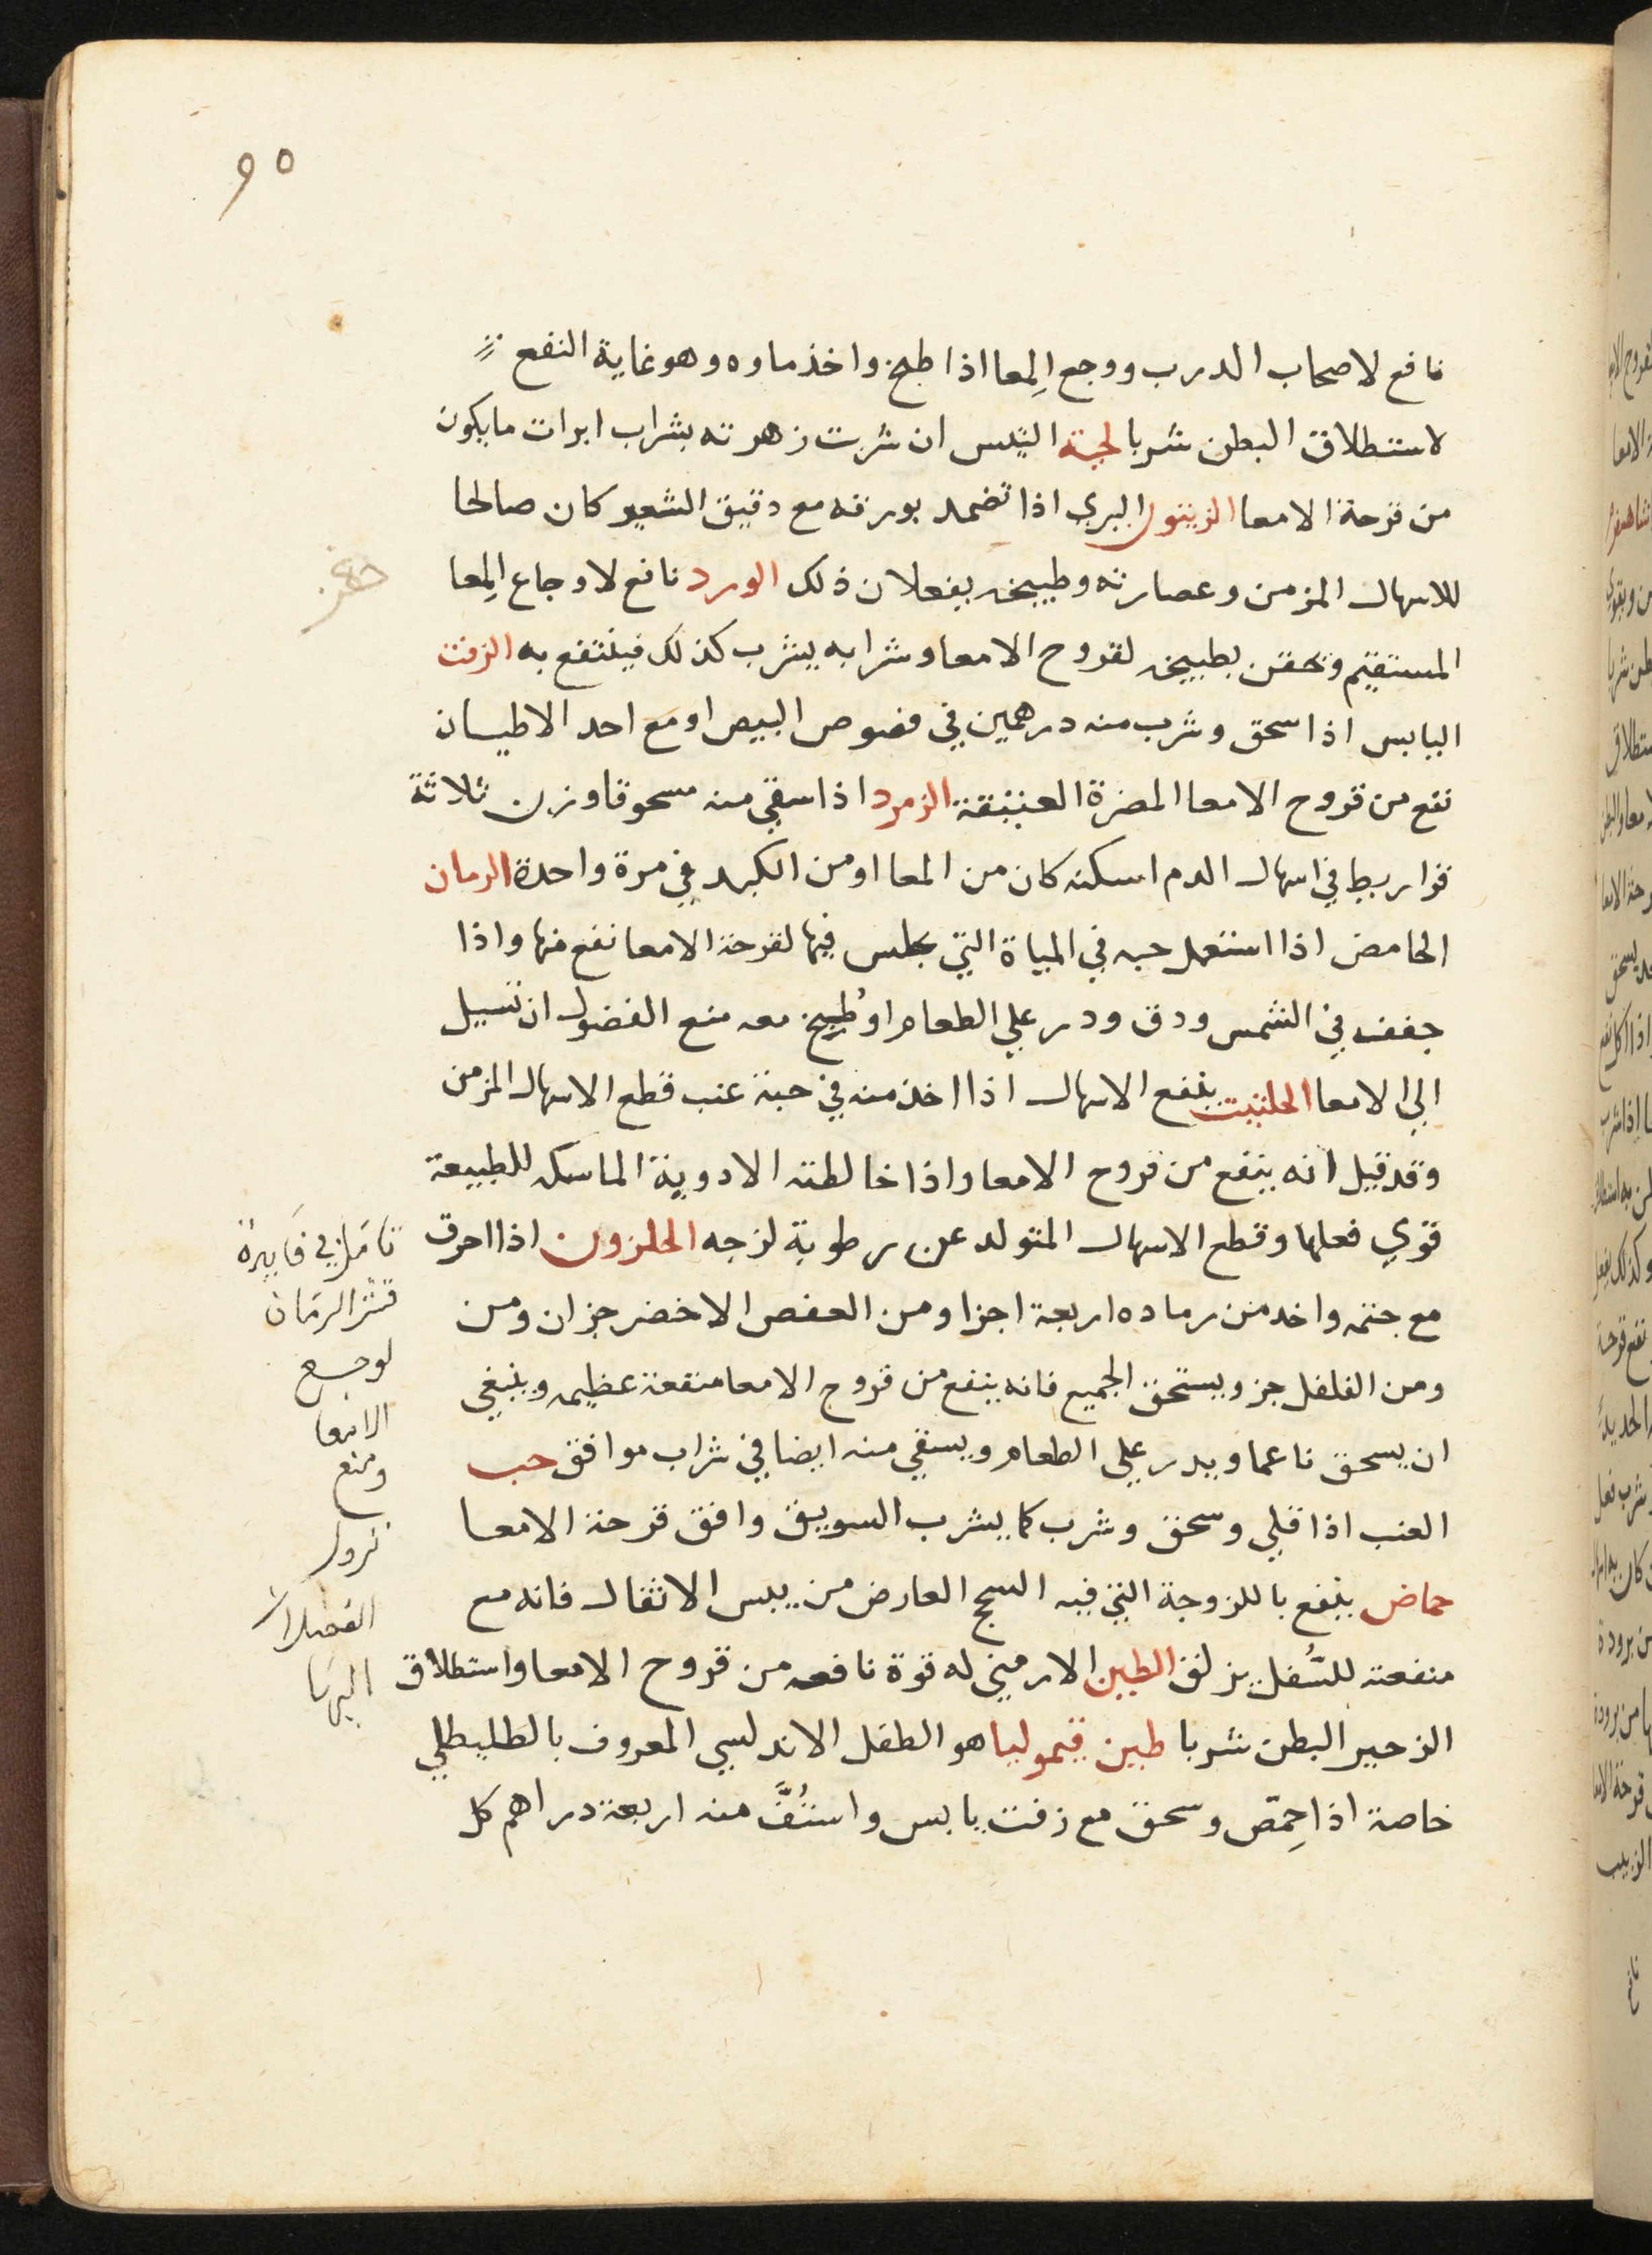 ٩٥
نافع لاصحاب الدرب ووجع المِعا اذا طبخ واخذ ماوه وهو غاية النفع
لاستطلاق البطن شربا لحية التيس ان شربت زهرته بشراب ابرات ما يكون
من قرحة الامعا الزيتون البري اذا تضمد بورقه مع دقيق الشعير كان صالحا
للاسهال المزمن وعصارته وطبيخه يفعلان ذلك الورد نافع لاوجاع المِعا
المستقيم وتحقن بطبيخه لقروح الامعا وشرابه يشرب كذلك فينتفع به الزفت
اليابس اذا سحق وشرب منه درهمين في فصوص البيض او مع احد الاطيان
نفع من قروح الامعا المضرة العتيقة الزمرد اذا سقي منه مسحوقا وزن ثلاثة
قراريط في اسهال الدم اسكنه كان من المعا او من الكبد في مرة واحدة الرمان
الحامض اذا استعمل حبه في المياة التي يجلس فيها لقرحة الامعا نفع منها واذا
جفف في الشمس ودق ودر علي الطعام او طُبِخ معه منع الفضول ان تسيل
الي الامعا الحلتيت ينفع الاسهال اذا اخذ منه في حبة عنب قطع الاسهال المزمن
وقد قيل انه ينفع من قروح الامعا واذا خالطته الادوية الماسكه للطبيعة
قوي فعلها وقطع الاسهال المتولد عن رطوبة لزجه الحلزون اذا احرق
مع جثته واخد من رماده اربعة اجزا ومن العفص الاخضر جزان ومن
ومن الفلفل جز ويستحق الجميع فانه ينفع من قروح الامعا منفعة عظيمه وينبغي
ان يسحق ناعما ويدر علي الطعام ويسقي منه ايضا في شراب موافق حب
العنب اذا قلي وسحق وشرب كما يشرب السويق وافق قرحة الامعا
حماض ينفع باللزوجة التي فيه السحج العارض من يبس الاثفال فانه مع
منفعته للثُفل يزلق الطين الارميني له قوة نافعه من قروح الامعا واستطلاق
الزحير البطن شربا طين قيموليا هو الطفل الاندلسي المعروف بالطليطلي
خاصة اذا حِمّص وسحق مع زفت يابس واستُفَّ منه اربعة دراهم كل
تامل في فايدة
قشر الرمان
لوجع
الامعا
ومنع
نزول
الفضلات
اليها